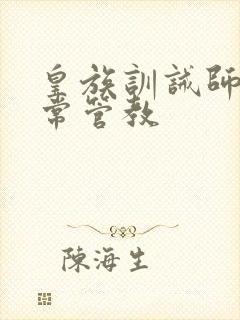 皇族訓誡師
常管教
陳海生